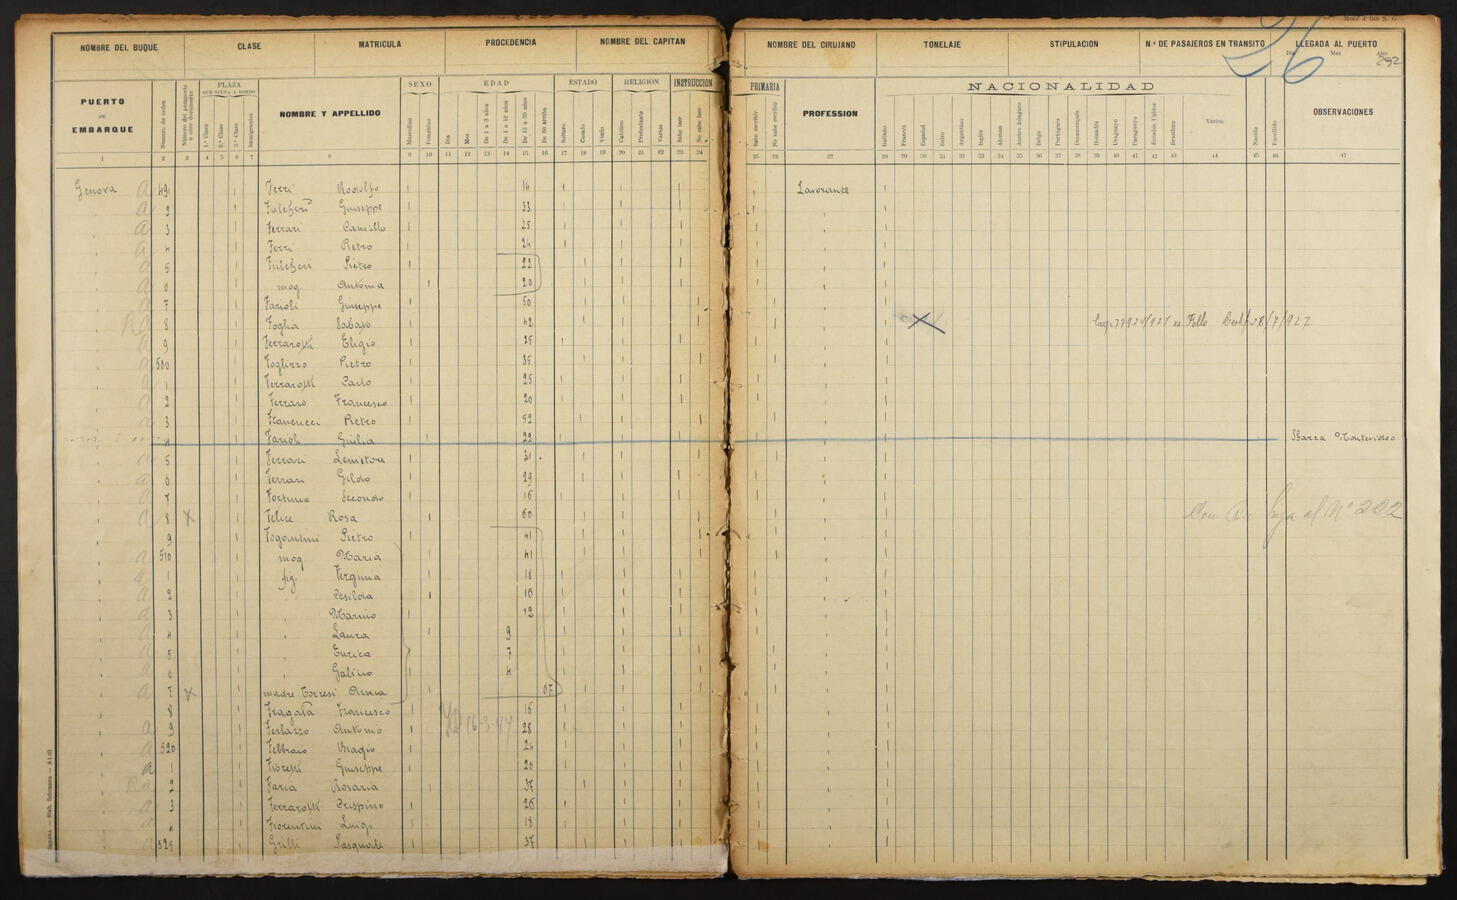 Mod. 4 bis S. G.
26
NOMBRE DEL BUQUE CLASE MATRICULA PROCEDENCIA NOMBRE DEL CAPITAN NOMBRE DEL CIRUJANO TONELAJE STIPULACION N.º DE PASAJEROS EN TRANSITO LLEGADA AL PUERTO
Dia Mes Año
292
PUERTO DE EMBARQUE
Número de orden
Número del pasaporte u otro documento
PLAZA
QUE OCUPA A BORDO
1.ª Clase 2.ª Clase 3.ª Clase Inmigrantes
NOMBRE Y APPELLIDO
SEXO
Masculino Femenino
EDAD
Dia Mes De 1 a 3 años De 4 a 12 años De 13 a 59 años De 60 arriba
ESTADO
Soltero Casado Viudo
RELIGION
Católico Protestante Varias
INSTRUCCION
Sabe leer No sabe leer
PRIMARIA
Sabe escribir No sabe escribir
PROFESSION
NACIONALIDAD
Italiano Francés Español Suizo Argentino Inglés Aleman Austro húngaro Belga Portugues Dinamarqués Holandés Uruguayo Paraguayo Estados Unidos Brasilero Varios Nacido Fallecido
OBSERVACIONES
1 2 3 4 5 6 7 8 9 10 11 12 13 14 15 16 17 18 19 20 21 22 23 24 25 26 27 28 29 30 31 32 33 34 35 36 37 38 39 40 41 42 43 44 45 46 47
Genova a 491 Ferri Rodolfo 14 Lavorante
a 2 Fulcheri Giuseppe 33
a 3 Ferrari Camillo 25
a 4 Ferri Pietro 24
a 5 Fulcheri Pietro 22
a 6 mog. Antonia 20
a 7 Farioli Giuseppe 50
Ra 8 Foglia Sabato 42 28/7/927
a 9 Ferrarotti Eligio 25
a 500 Foglizzo Pietro 35
a 1 Ferrarotti Carlo 25
a 2 Ferraro Francesco 20
a 3 Franceucci Pietro 52
4 Farioli Giulia 22 Sbarca Montevideo
a 5 Ferrari 31
a 6 Ferrari Gildo 29
a 7 Fortuna Secondo 16
a 8 X Felice Rosa 60 Con su hija al Nº 202
9 Pietro 41
a 510 mog. Maria 41
a 1 fig. Vergina 18
a 2 Cesilda 16
a 3 Marino 12
a 4 Laura 9
a 5 Enrica 7
a 6 4
a 7 X madre Torresi Anna 67
8 Fragata Francesco 16
16-3-44
a 9 Ferlazzo Antonio 28
a 520 Febbraio Biagio 24
a 1 Fioretti Giuseppe 20
Ra 2 Faria Rosaria 37
a 3 Ferrarotti Crispino 26
a 4 Fiorentini Luigi 18
a 525 Grilli Pasquale 37